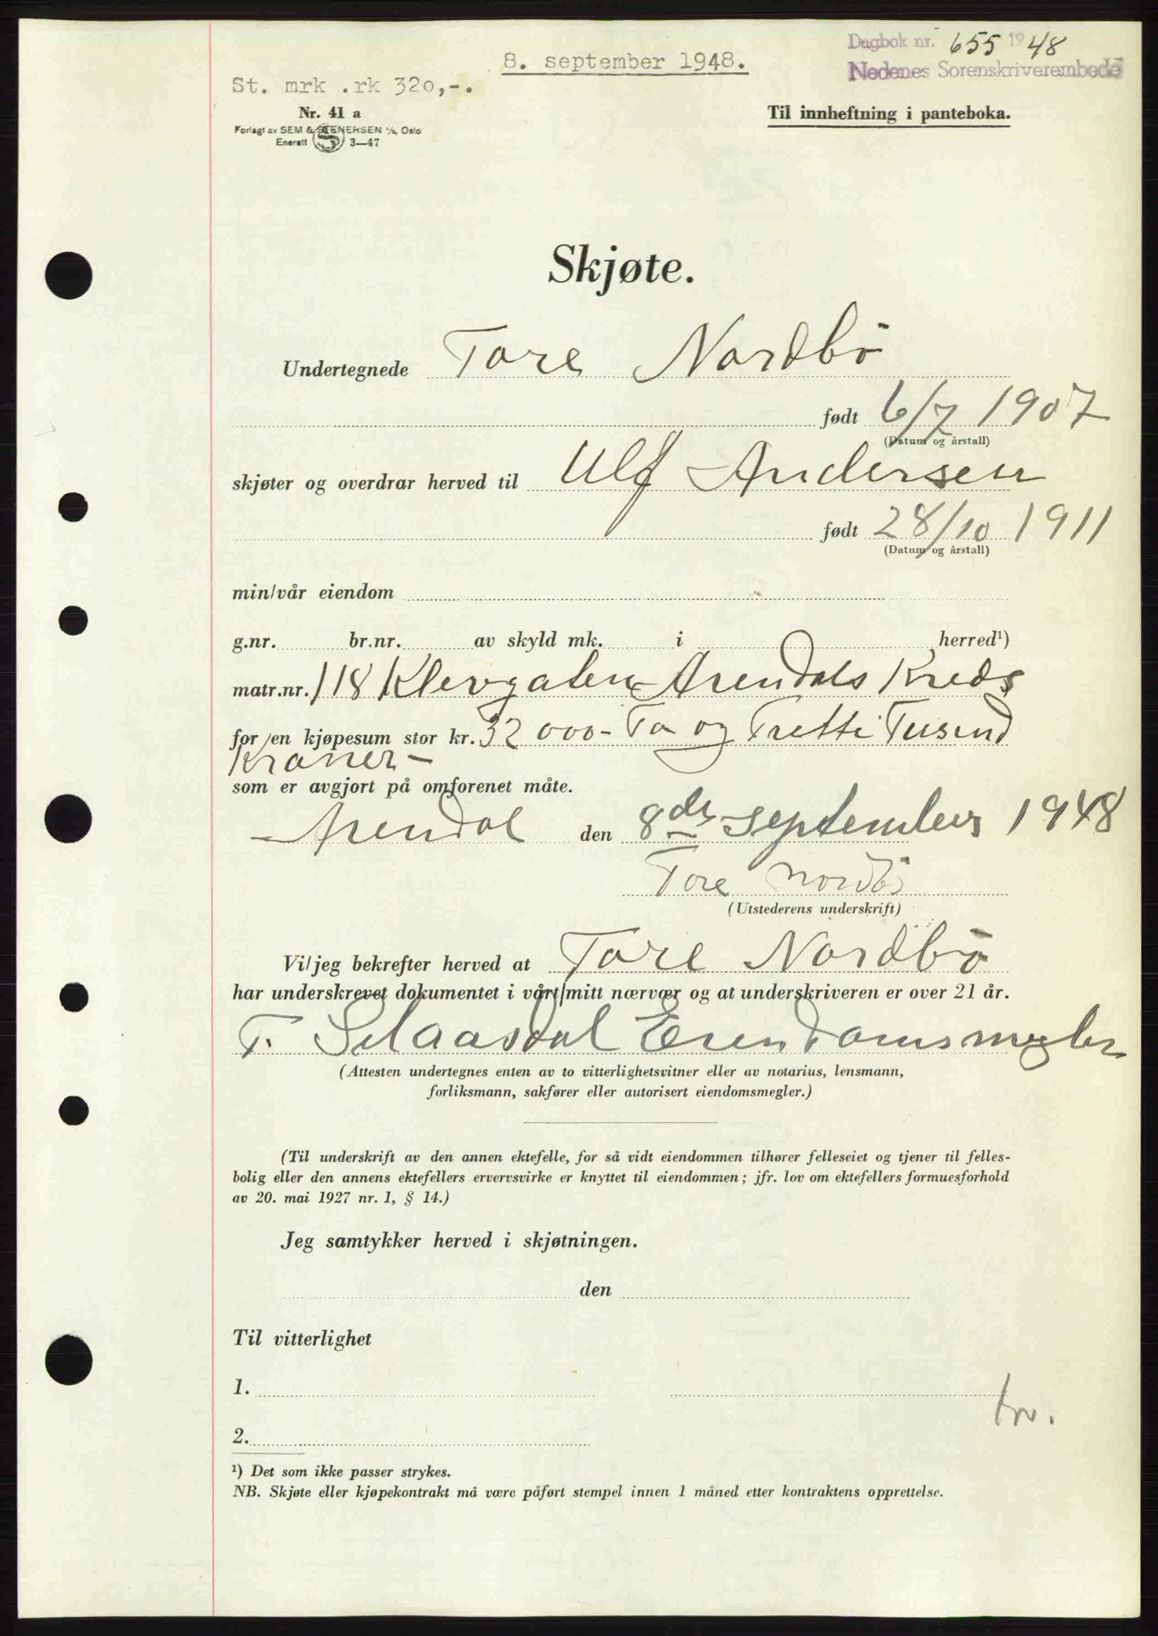 Dagbok nr. 655 1948
8. september 1948.
Nedenes Sorenskriverembede
St. mrk .rk 320,-.
Nr. 41 a
Til innheftning i panteboka.
Forlagt av SEM & STENERSEN A/S, Oslo
Enerett S 3—47
Skjøte.
Undertegnede Tore Nordbö
født 6/7 1907
(Datum og årstall)
skjøter og overdrar herved til Ulf Andersen
født 28/10 1911
(Datum og årstall)
min/vår eiendom
g.nr. br.nr. av skyld mk. i herred¹)
matr.nr. 118 Klevgaten Arendals Kreds
for en kjøpesum stor kr. 32 000- To og Tretti Tusind
Kroner-
som er avgjort på omforenet måte.
Arendal den 8de september 1948
Tore Nordbö
(Utstederens underskrift)
Vi/jeg bekrefter herved at Tore Nordbö
har underskrevet dokumentet i vårt/mitt nærvær og at underskriveren er over 21 år.
T. Eiendomsmegler
(Attesten undertegnes enten av to vitterlighetsvitner eller av notarius, lensmann,
forliksmann, sakfører eller autorisert eiendomsmegler.)
(Til underskrift av den annen ektefelle, for så vidt eiendommen tilhører felleseiet og tjener til felles-
bolig eller den annens ektefellers ervervsvirke er knyttet til eiendommen; jfr. lov om ektefellers formuesforhold
av 20. mai 1927 nr. 1, § 14.)
Jeg samtykker herved i skjøtningen.
den
Til vitterlighet
1.
2.
¹) Det som ikke passer strykes.
NB. Skjøte eller kjøpekontrakt må være påført stempel innen 1 måned etter kontraktens opprettelse.